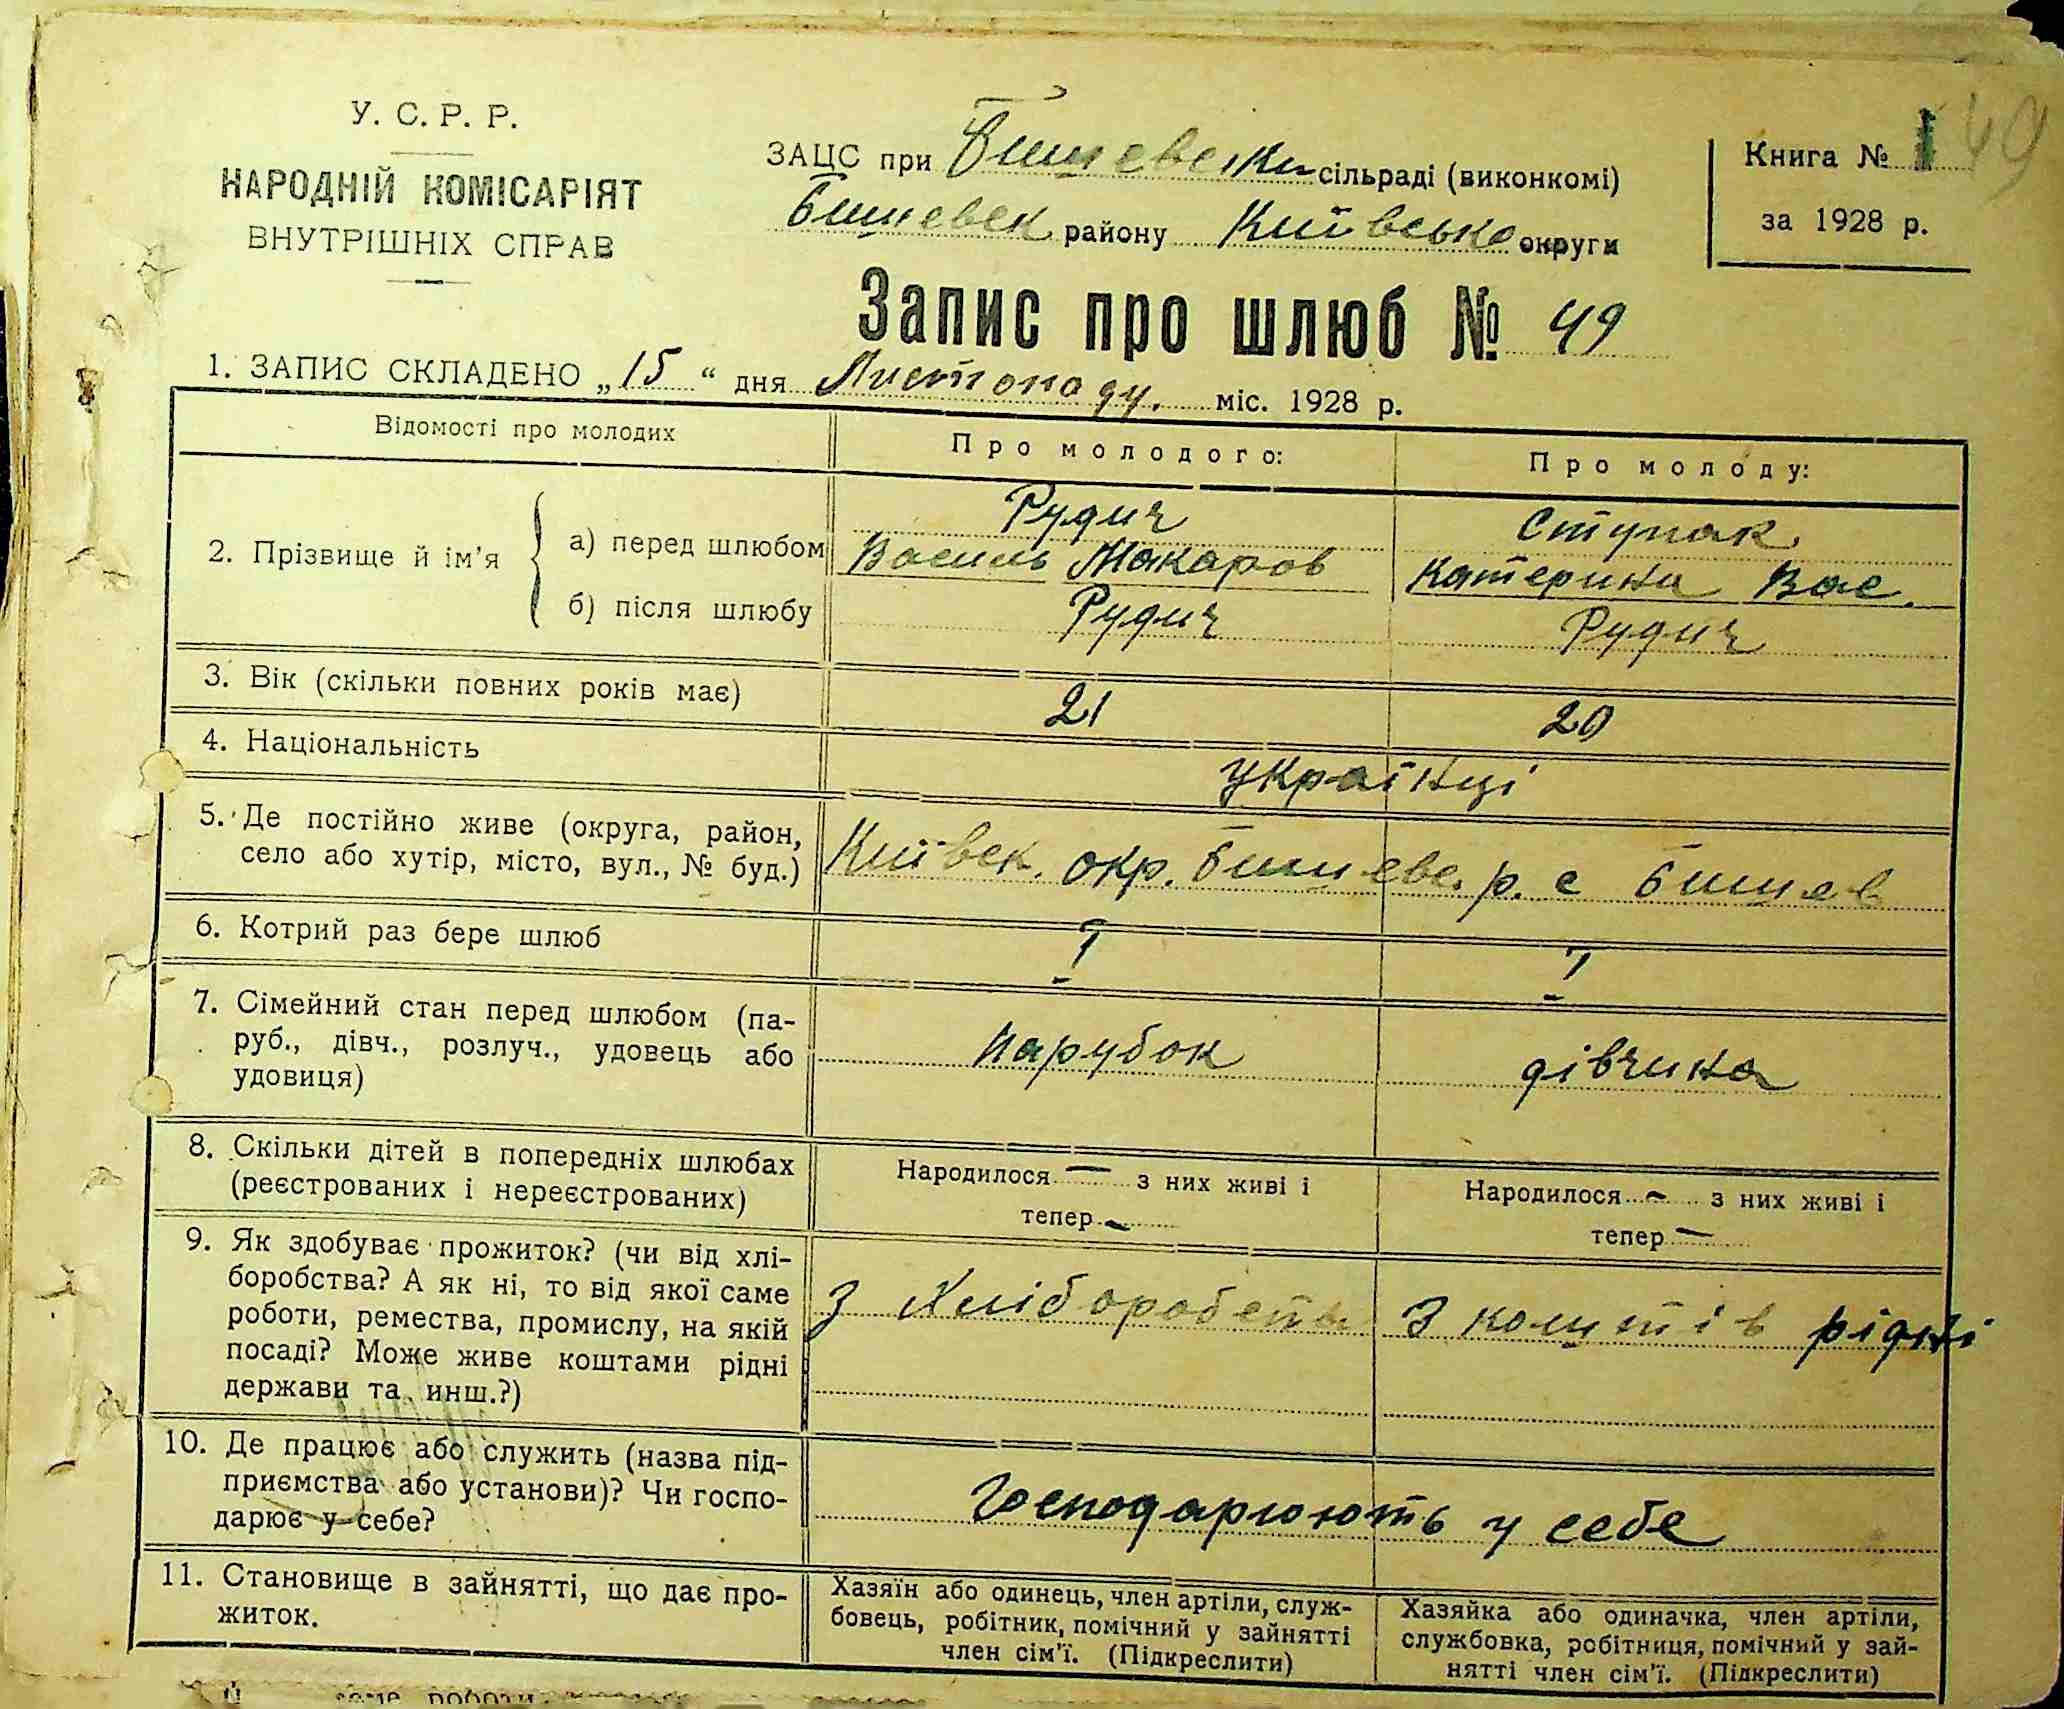 У. С. Р. Р.
НАРОДНІЙ КОМІСАРІЯТ
ВНУТРІШНІХ СПРАВ
ЗАЦС при Бишевські сільраді (виконкомі)
Бишевськ району Київсько округи
Книга № 1 49
за 1928 р.
Запис про шлюб № 49
1. ЗАПИС СКЛАДЕНО „15“ дня Листопаду. міс. 1928 р.
Відомості про молодих
Про молодого:
Про молоду:
2. Прізвище й ім’я
а) перед шлюбом
Рудич
Василь Макаров
Ступак
Катерина Вас.
б) після шлюбу
Рудич
Рудич
3. Вік (скільки повних років має)
21
20
4. Національність
Українці
5. Де постійно живе (округа, район,
село або хутір, місто, вул., № буд.)
Київск. окр. Бишевс. р. с Бишев
6. Котрий раз бере шлюб
1
1
7. Сімейний стан перед шлюбом (па-
руб., дівч., розлуч., удовець або
удовиця)
парубок
дівчина
8. Скільки дітей в попередніх шлюбах
(реєстрованих і нереєстрованих)
Народилося — з них живі і
тепер —
Народилося — з них живі і
тепер —
9. Як здобуває прожиток? (чи від хлі-
боробства? А як ні, то від якої саме
роботи, ремества, промислу, на якій
посаді? Може живе коштами рідні
держави та инш.?)
З хліборобств
З коштів рідні
10. Де працює або служить (назва під-
приємства або установи)? Чи госпо-
дарює у себе?
Господарюють у себе
11. Становище в зайнятті, що дає про-
житок.
Хазяїн або одинець, член артіли, служ-
бовець, робітник, помічний у зайнятті
член сім’ї. (Підкреслити)
Хазяйка або одиначка, член артіли,
службовка, робітниця, помічний у зай-
нятті член сім’ї. (Підкреслити)